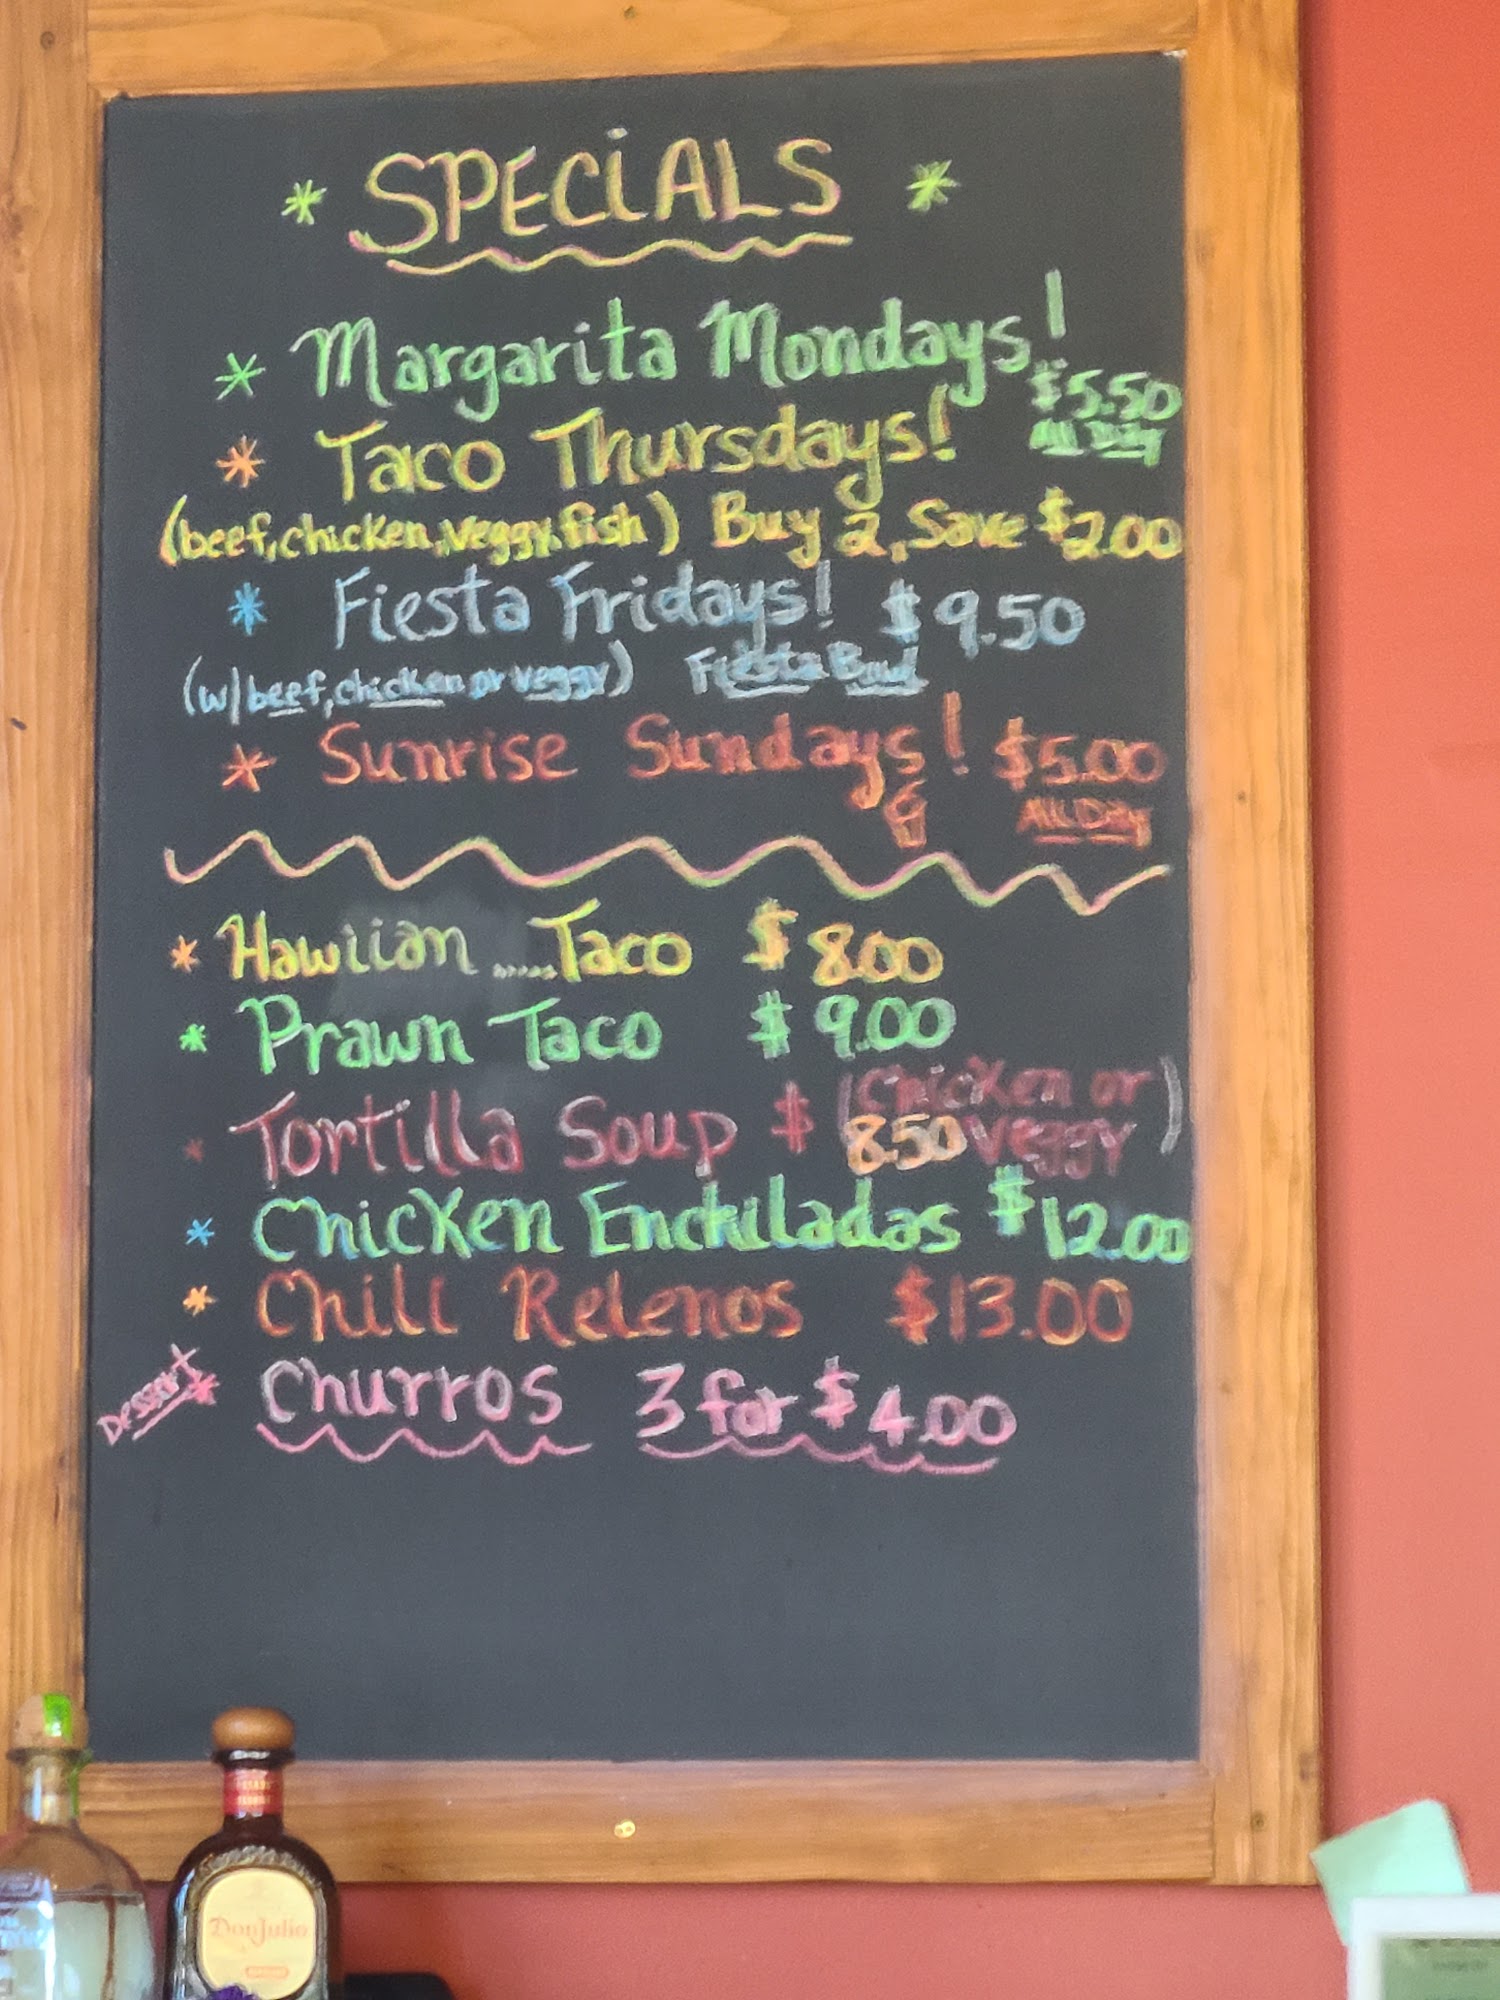 * SPECiALS *
* Margarita Mondays! $5.50
All Day
* Taco Thursdays!
(beef, chicken, veggy, fish) Buy 2, Save $2.00
* Fiesta Fridays! $9.50
(w/ beef, chicken or veggy) Fiesta Bowl
* Sunrise Sundays! $5.00
All Day
* Hawiian ......Taco $8.00
* Prawn Taco $9.00
* Tortilla Soup $8.50 (Chicken or Veggy)
* Chicken Enchiladas $12.00
* Chill Relenos $13.00
Dessert * Churros 3 for $4.00
Don Julio